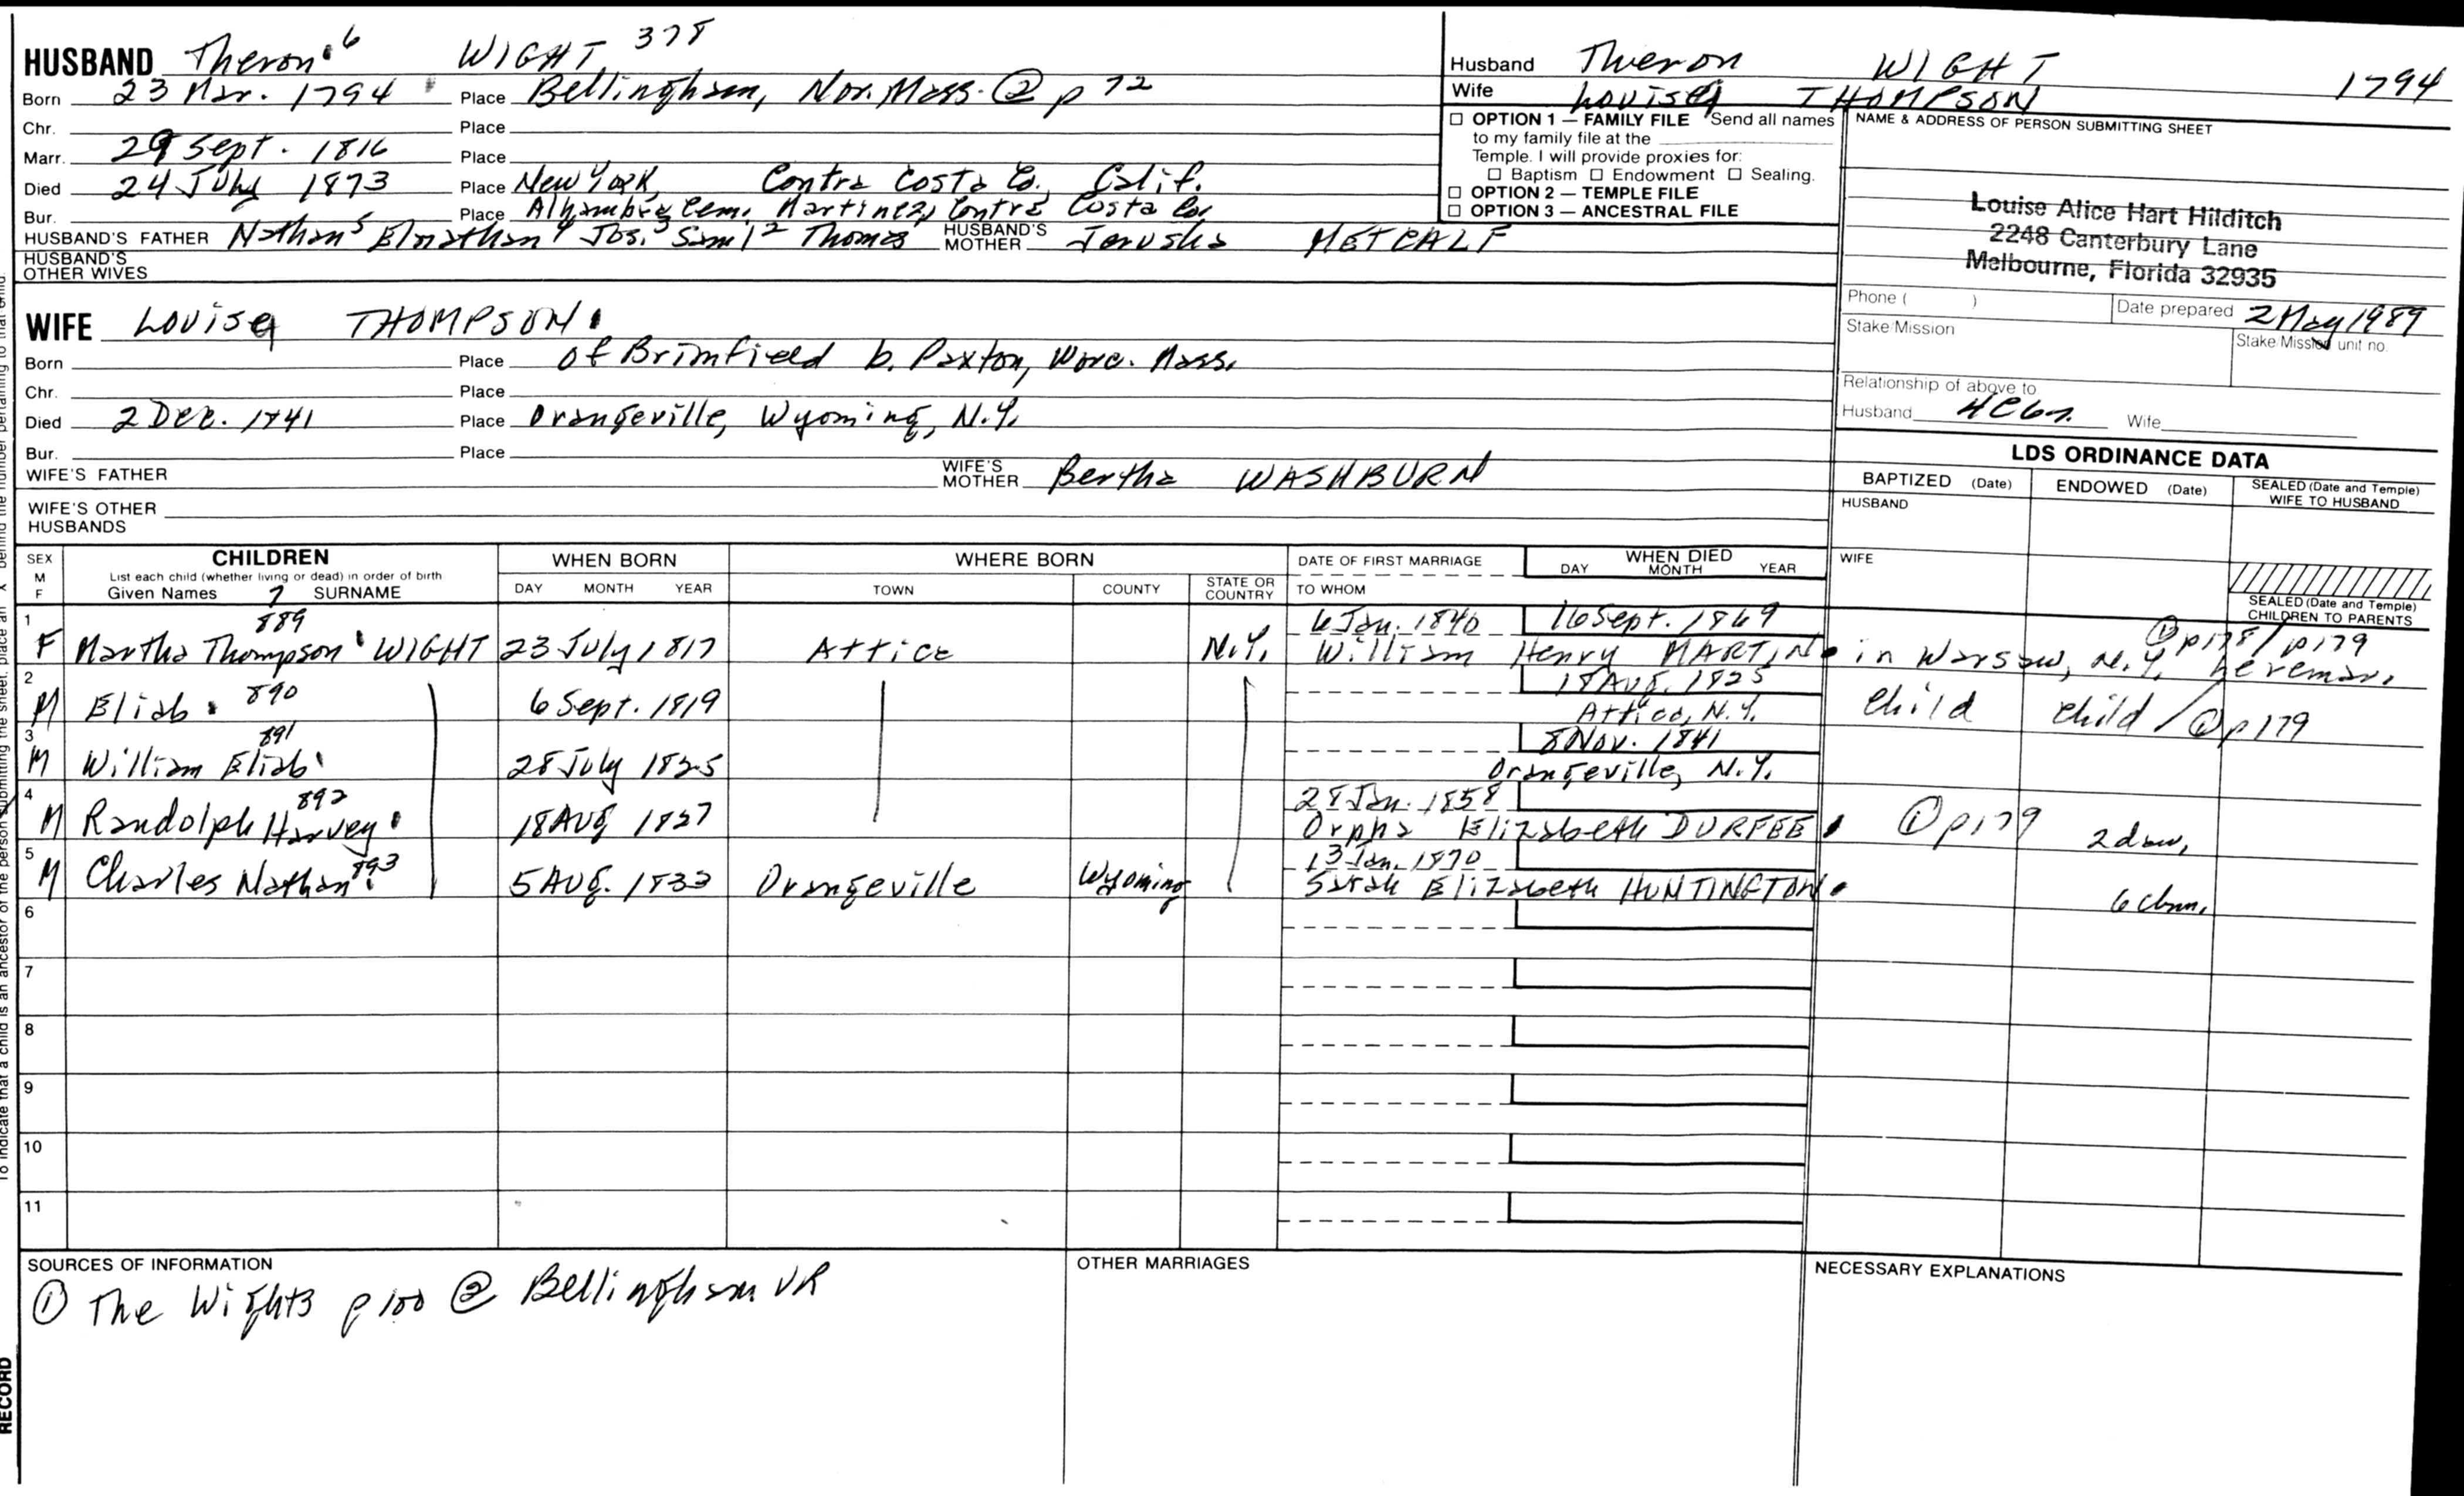 HUSBAND Theron 6 WIGHT 378
Born 23 Mar. 1794 Place Bellingham, Nor. Mass. ② p 72
Chr. Place
Marr. 29 Sept. 1816 Place
Died 24 July 1873 Place New York, Contra Costa Co., Calif.
Bur. Place Alhambra Cem. Martinez, Contra Costa Co.
HUSBAND'S FATHER Nathan 5 Elnathan 4 Jos. 3 Saml 2 Thomas HUSBAND'S MOTHER Jerusha METCALF
HUSBAND'S OTHER WIVES
WIFE Louisa THOMPSON
Born Place of Brimfield b. Paxton, Worc. Mass.
Chr. Place
Died 2 Dec. 1841 Place Orangeville, Wyoming, N.Y.
Bur. Place
WIFE'S FATHER WIFE'S MOTHER Bertha WASHBURN
WIFE'S OTHER HUSBANDS
Husband Theron WIGHT 1794
Wife Louisa THOMPSON
☐ OPTION 1 — FAMILY FILE Send all names
to my family file at the
Temple. I will provide proxies for:
☐ Baptism ☐ Endowment ☐ Sealing.
☐ OPTION 2 — TEMPLE FILE
☐ OPTION 3 — ANCESTRAL FILE
NAME & ADDRESS OF PERSON SUBMITTING SHEET
Louise Alice Hart Hilditch
2248 Canterbury Lane
Melbourne, Florida 32935
Phone ( ) Date prepared 2 May 1989
Stake/Mission Stake/Mission unit no.
Relationship of above to
Husband Wife
LDS ORDINANCE DATA
BAPTIZED (Date) ENDOWED (Date) SEALED (Date and Temple) WIFE TO HUSBAND
HUSBAND
WIFE
SEALED (Date and Temple) CHILDREN TO PARENTS
SEX M F CHILDREN List each child (whether living or dead) in order of birth Given Names 7 SURNAME
WHEN BORN DAY MONTH YEAR
WHERE BORN TOWN COUNTY STATE OR COUNTRY
DATE OF FIRST MARRIAGE TO WHOM
WHEN DIED DAY MONTH YEAR
1 889 6 Jan. 1840 16 Sept. 1869
F Martha Thompson WIGHT 23 July 1817 Attica N.Y. William Henry MARTIN in Warsaw, N.Y. he remar. ① p178/p179
2 890 18 Aug. 1825
M Eliab 6 Sept. 1819 Attica, N.Y. child child / ① p179
3 891 8 Nov. 1841
M William Eliab 28 July 1825 Orangeville, N.Y.
4 892 28 Jan. 1858
M Randolph Harvey 18 Aug 1827 Orpha Elizabeth DURFEE ① p179 2 dau.
5 893 13 Jan. 1870
M Charles Nathan 5 Aug. 1833 Orangeville Wyoming Sarah Elizabeth HUNTINGTON 6 chn.
6
7
8
9
10
11
SOURCES OF INFORMATION
① The Wights p 100 ② Bellingham VR
OTHER MARRIAGES
NECESSARY EXPLANATIONS
To indicate that a child is an ancestor of the person submitting the sheet, place an "X" behind the number pertaining to that child.
RECORD